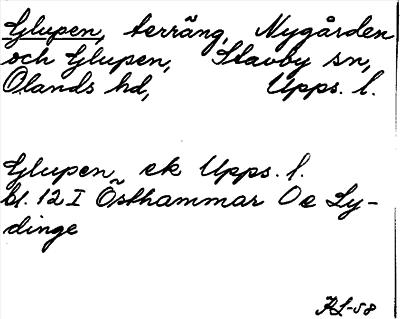 Glupen, terräng, Nygården
och Glupen, Stavby sn,
Olands hd, Upps. l.
Glupen, ek Upps. l.
bl. 12 I Östhammar O e Ly-
dinge
KL-58